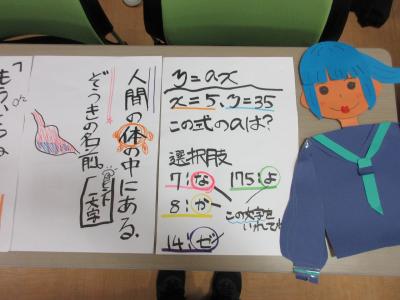 y=ax
x=5、y=35
この式のaは?
選択肢
7:な 175:よ
8:か
14:ぜ
この文字を
いれてね
人間の体の中にある、
ぞうきの名前
ヒント
一文字
「もう、